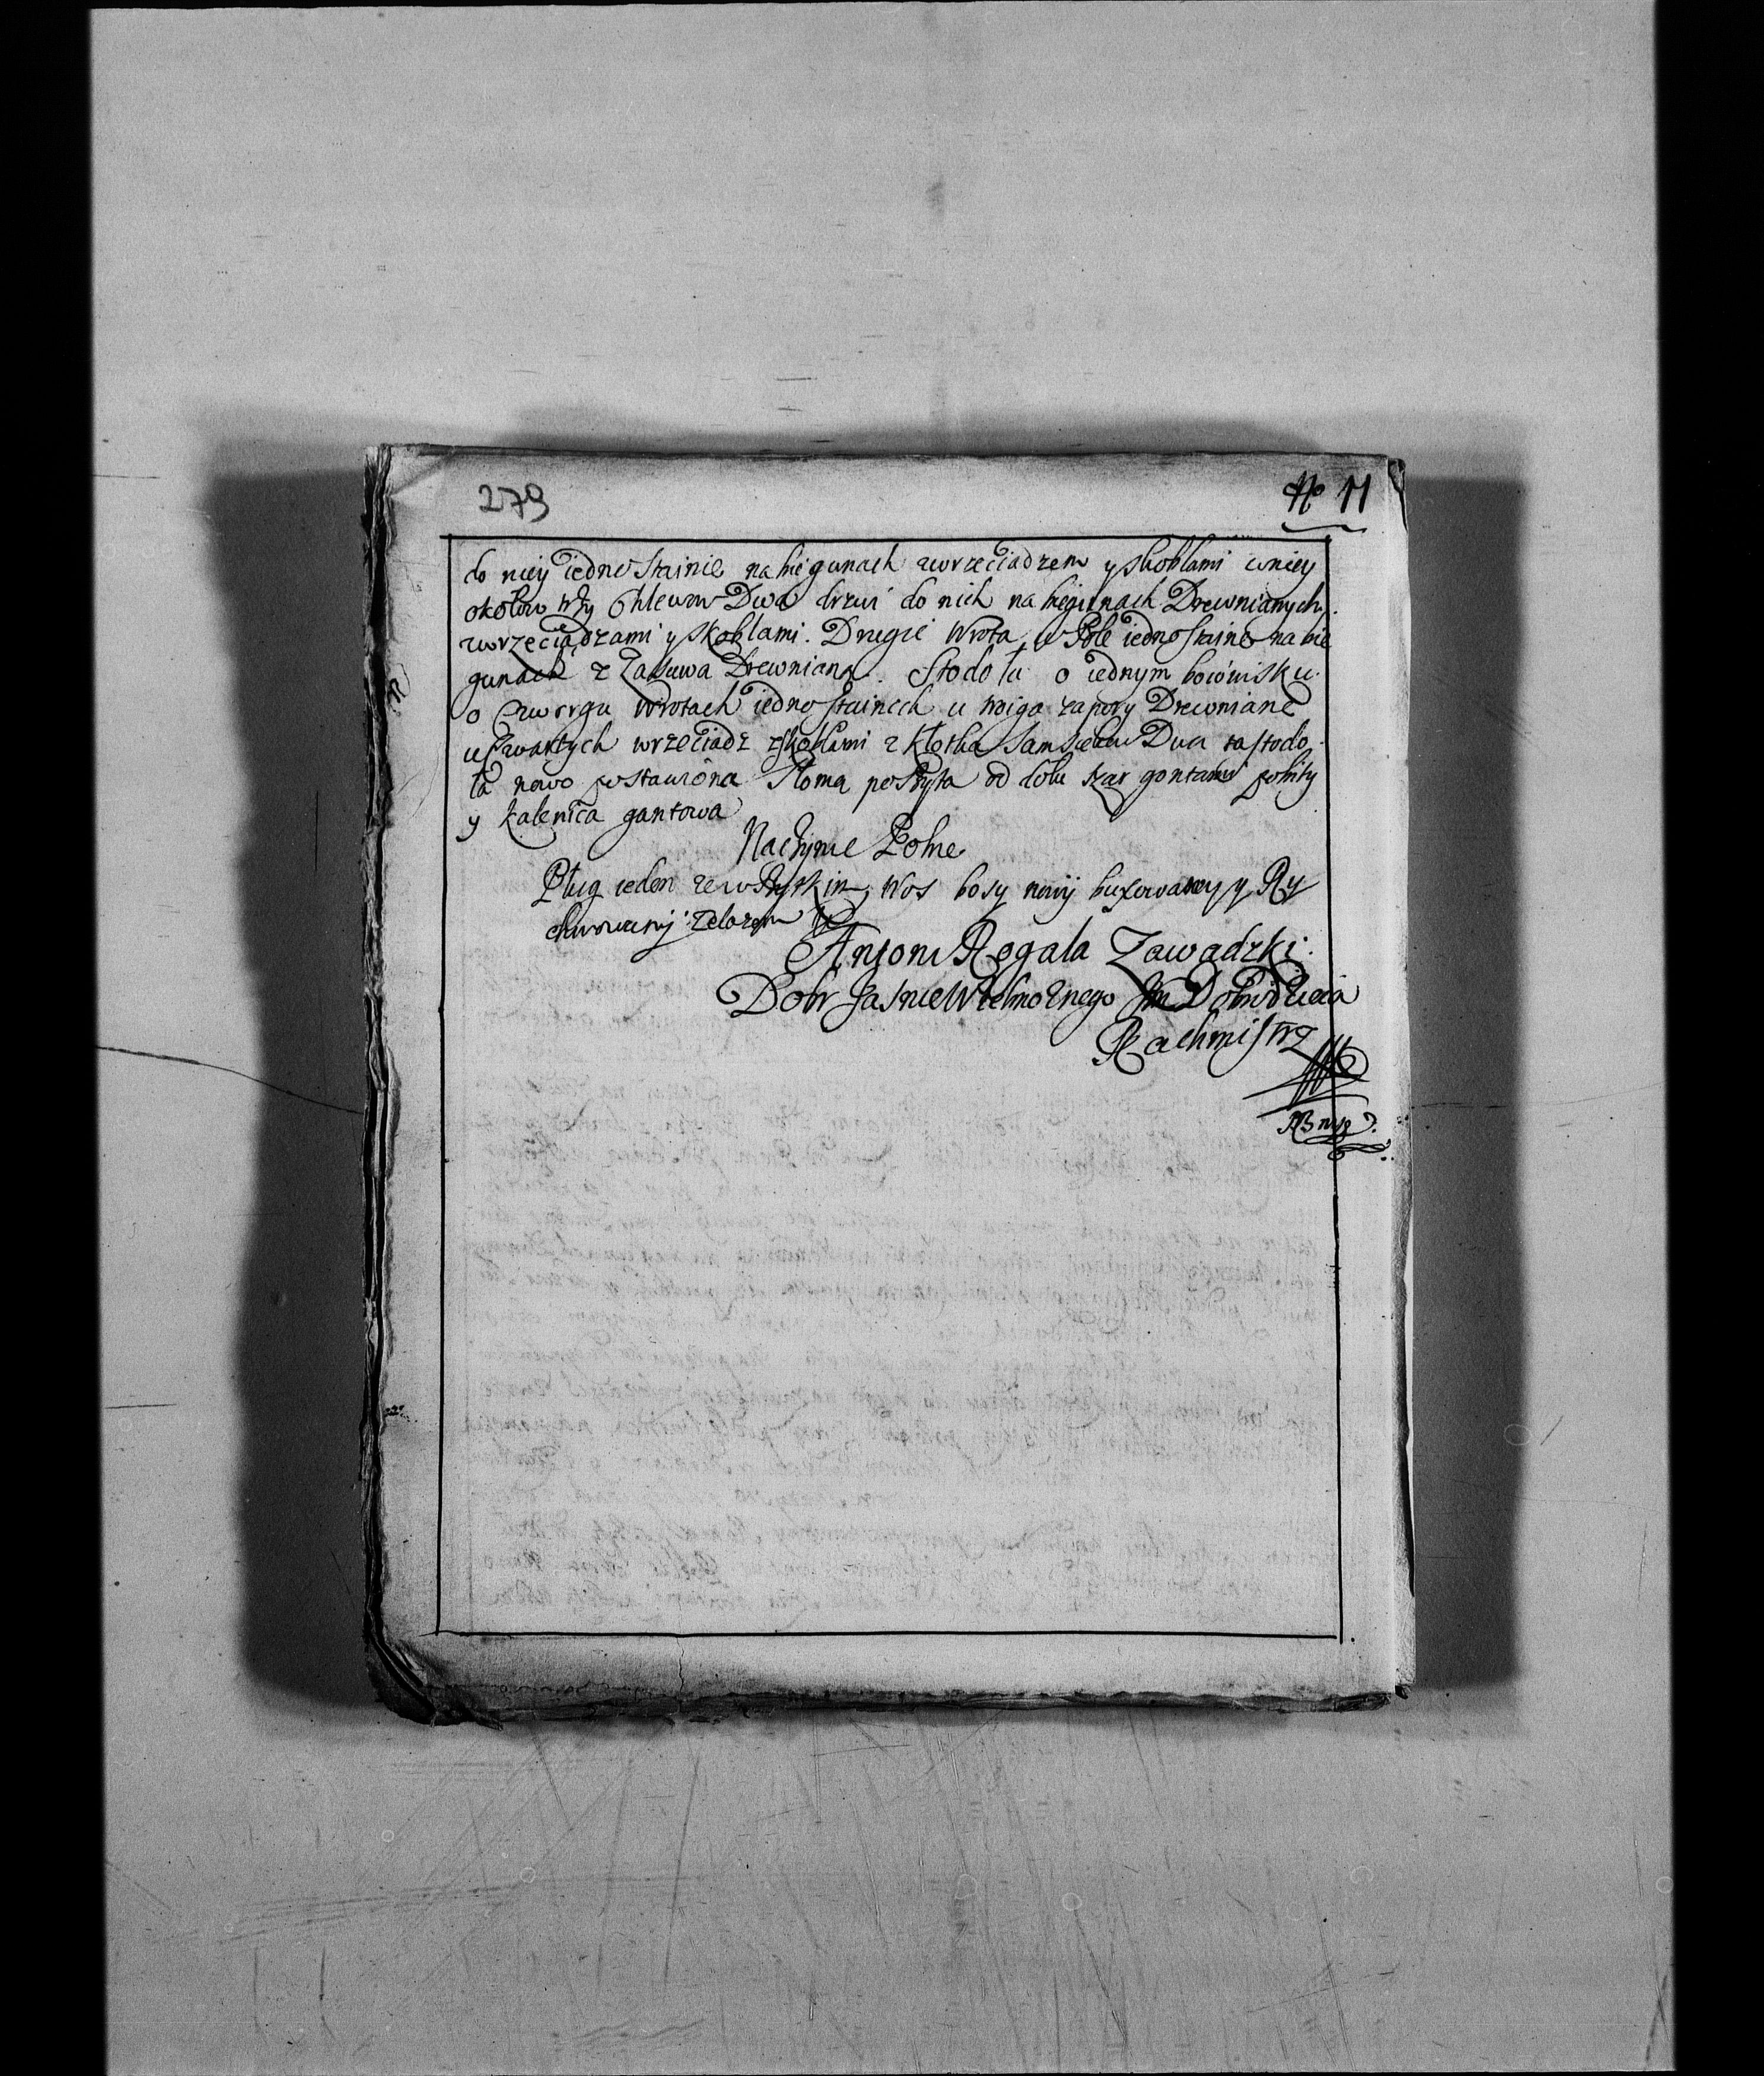 279
No 11
do niey iednostainie na biegunach zwrzeciadzem y skoblami wniey
okołow trzy Chlewow Dwa drzwi do nich na biegunach Drewnianych
zwrzeciądzami y skoblami. Drugie Wrota w Pole iednostaine na bie
gunach z Zasuwa Drewniana. Stodoła o iednym boiowisku
o Czworgu Wrotach iednostainech u troiga zapory Drewniane
uczwartych wrzeciadz zskoblami z Kłotka Samsiekow Dwa ta stodo
ła nowo postawiona Słoma poszyta od dołu szar gontami pobity
y kalenica gantowa
Naczynie Polne
Pług ieden ze wszytkim, Wos bosy nowy buxowany y Ry
chwowany żelazem
Antoni Rogala Zawadzki
Dobr Jasnie Wielmoznego Jm Dobrodzieia
Rachmistrz